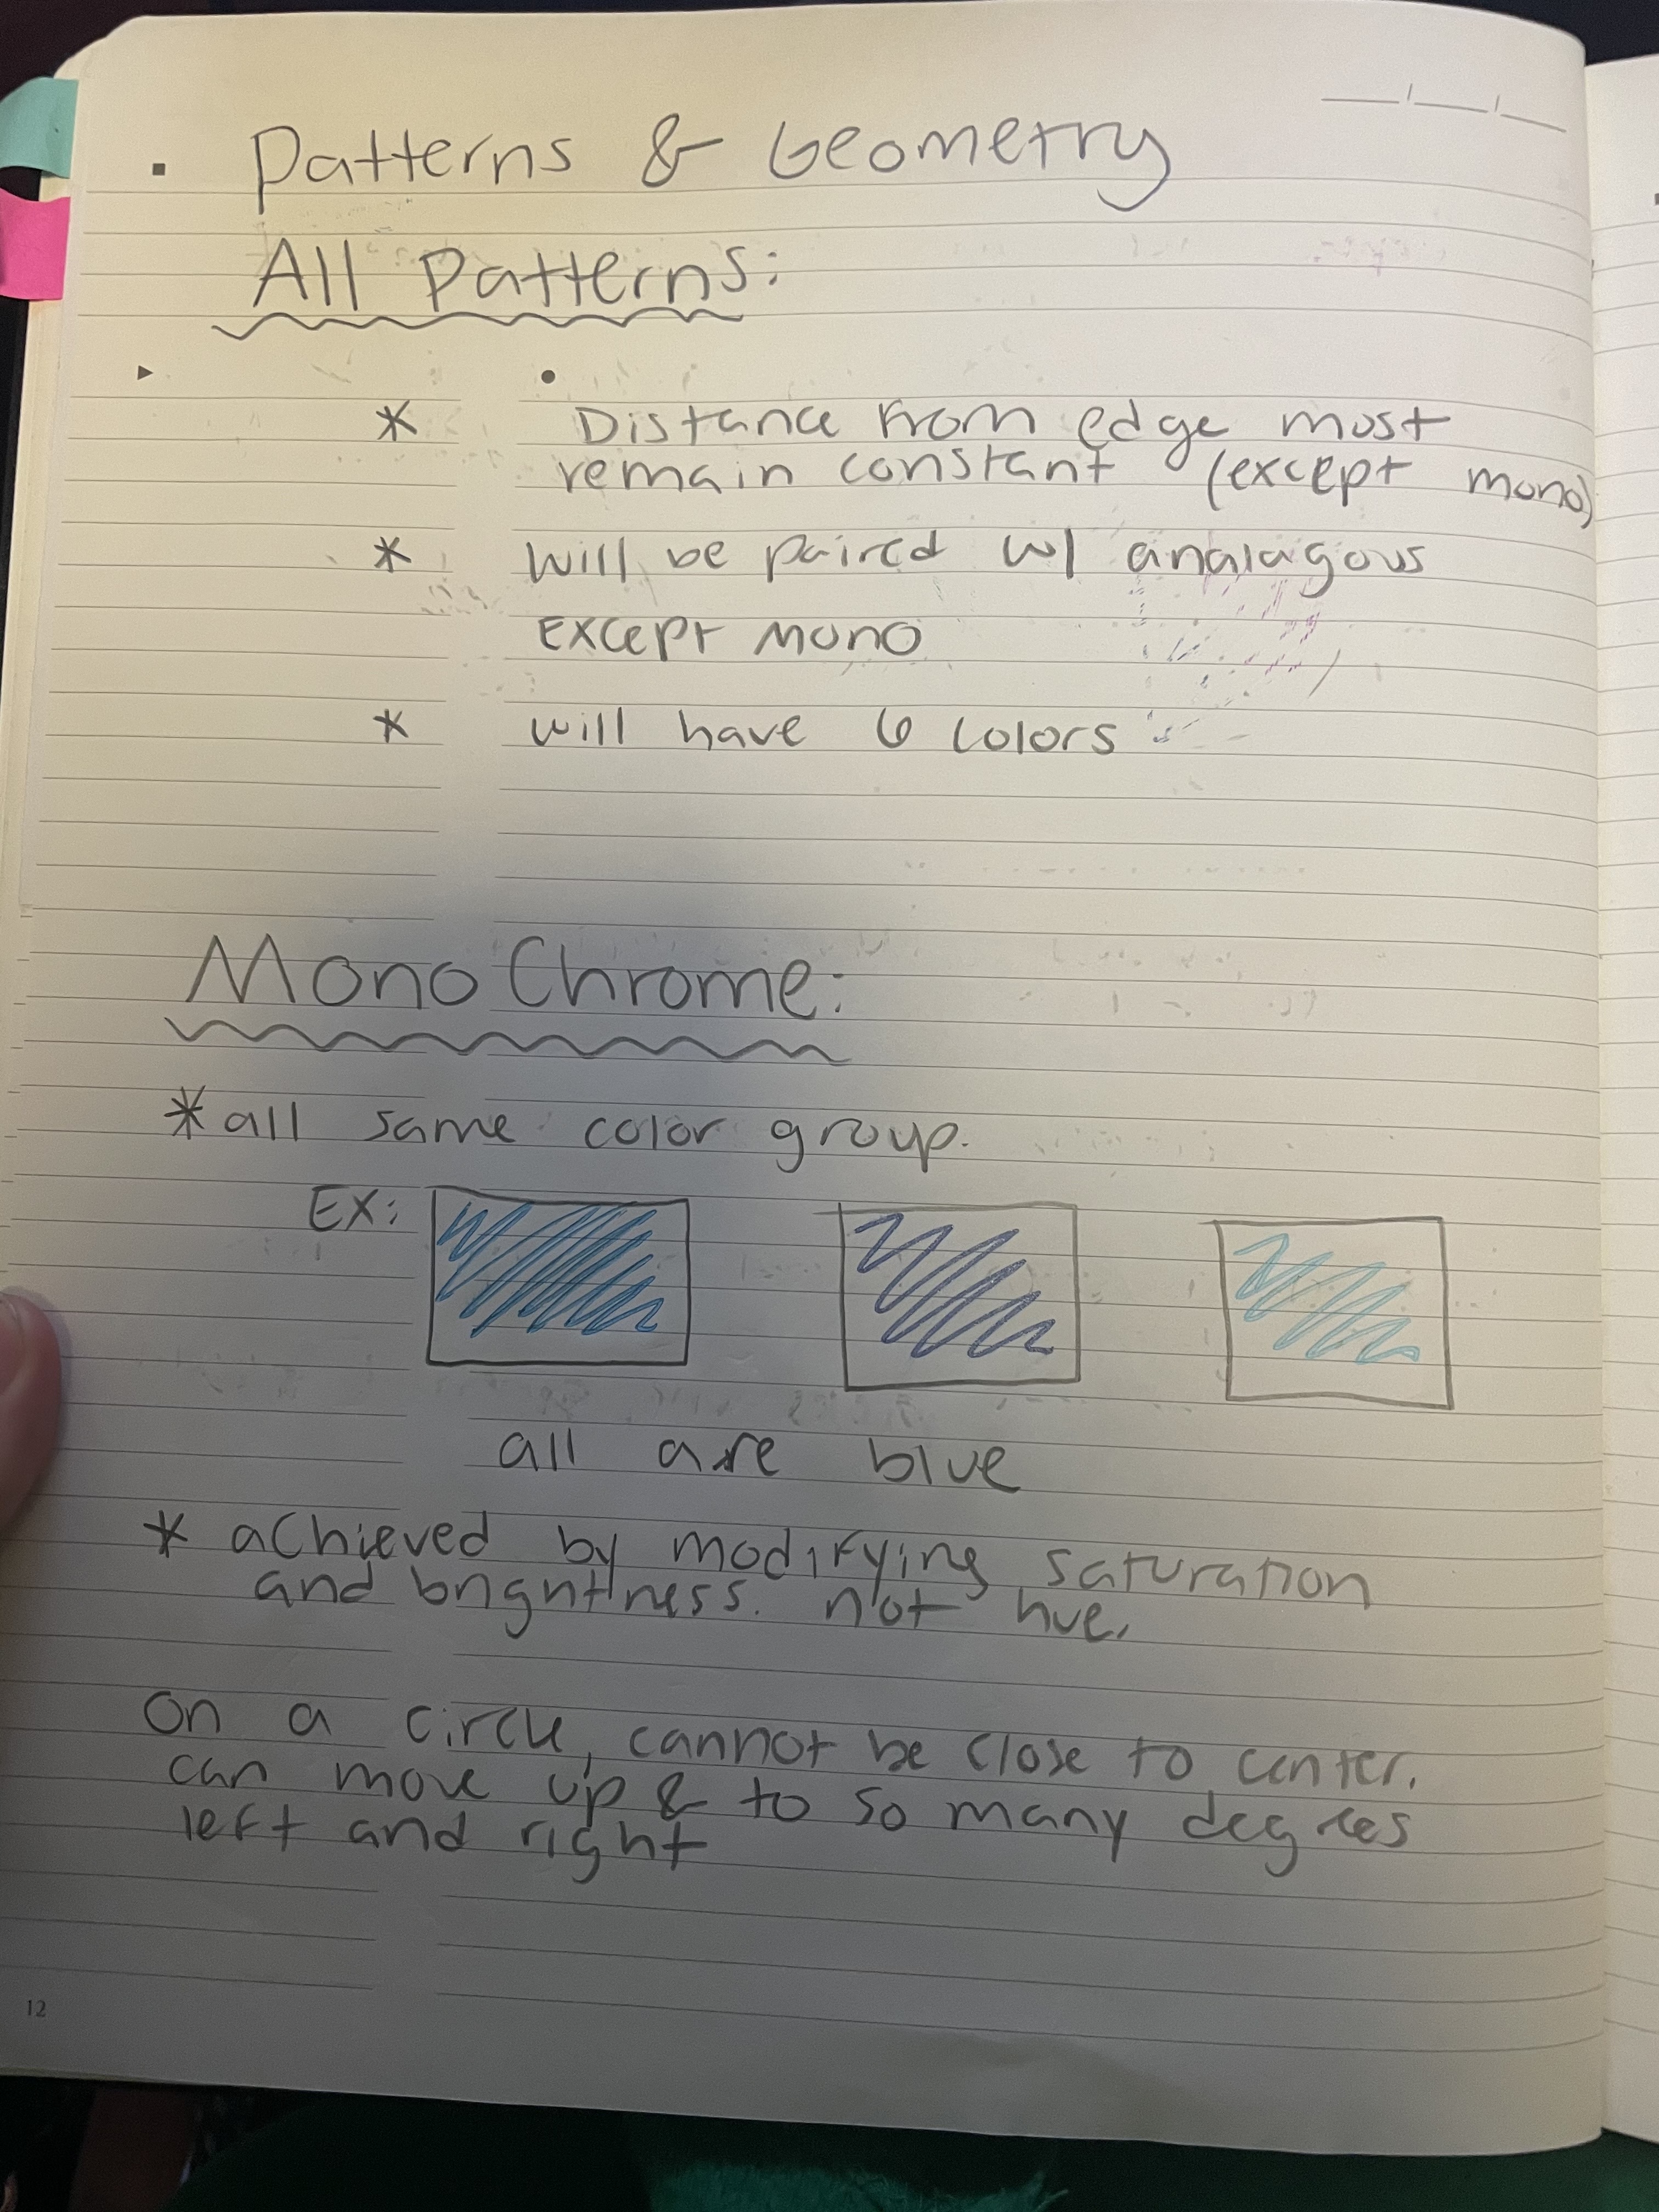 Patterns & Geometry
All Patterns:
* Distance from edge most
remain constant (except mono)
* Will be paired w/ analagous
Except mono
* will have 6 colors
Mono Chrome:
* all same color group.
EX:
all are blue
* achieved by modifying saturation
and brightness. not hue.
On a circle, cannot be close to center.
can move up & to so many degrees
left and right
12